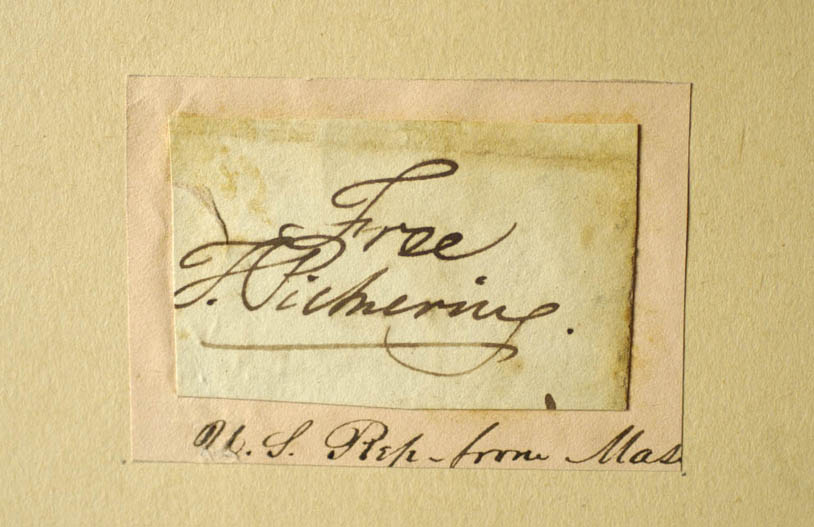 Free
T. Pickering.
U. S. Rep. from Mas